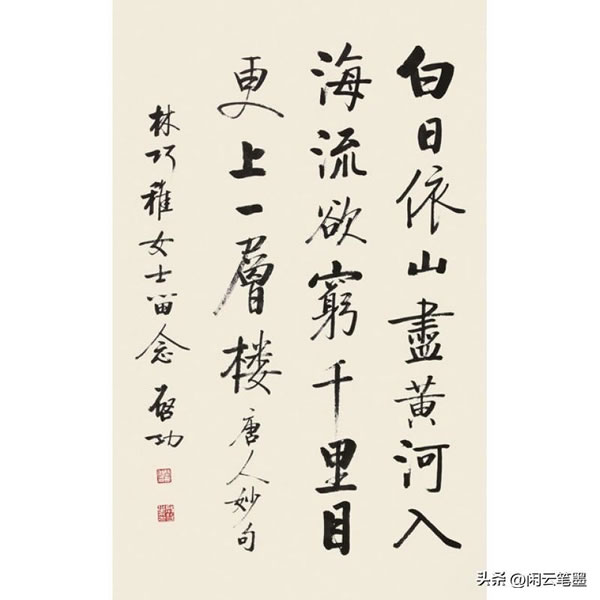 白日依山盡黄河入
海流欲窮千里目
更上一層楼唐人妙句
林巧稚女士留念 啓功
头条 @闲云笔墨